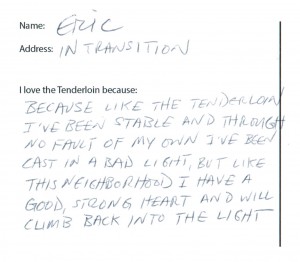 Name: ERIC
Address: IN TRANSITION
I love the Tenderloin because:
BECAUSE LIKE THE TENDERLOIN
I'VE BEEN STABLE AND THROUGH
NO FAULT OF MY OWN I'VE BEEN
CAST IN A BAD LIGHT, BUT LIKE
THIS NEIGHBORHOOD I HAVE A
GOOD, STRONG HEART AND WILL
CLIMB BACK INTO THE LIGHT